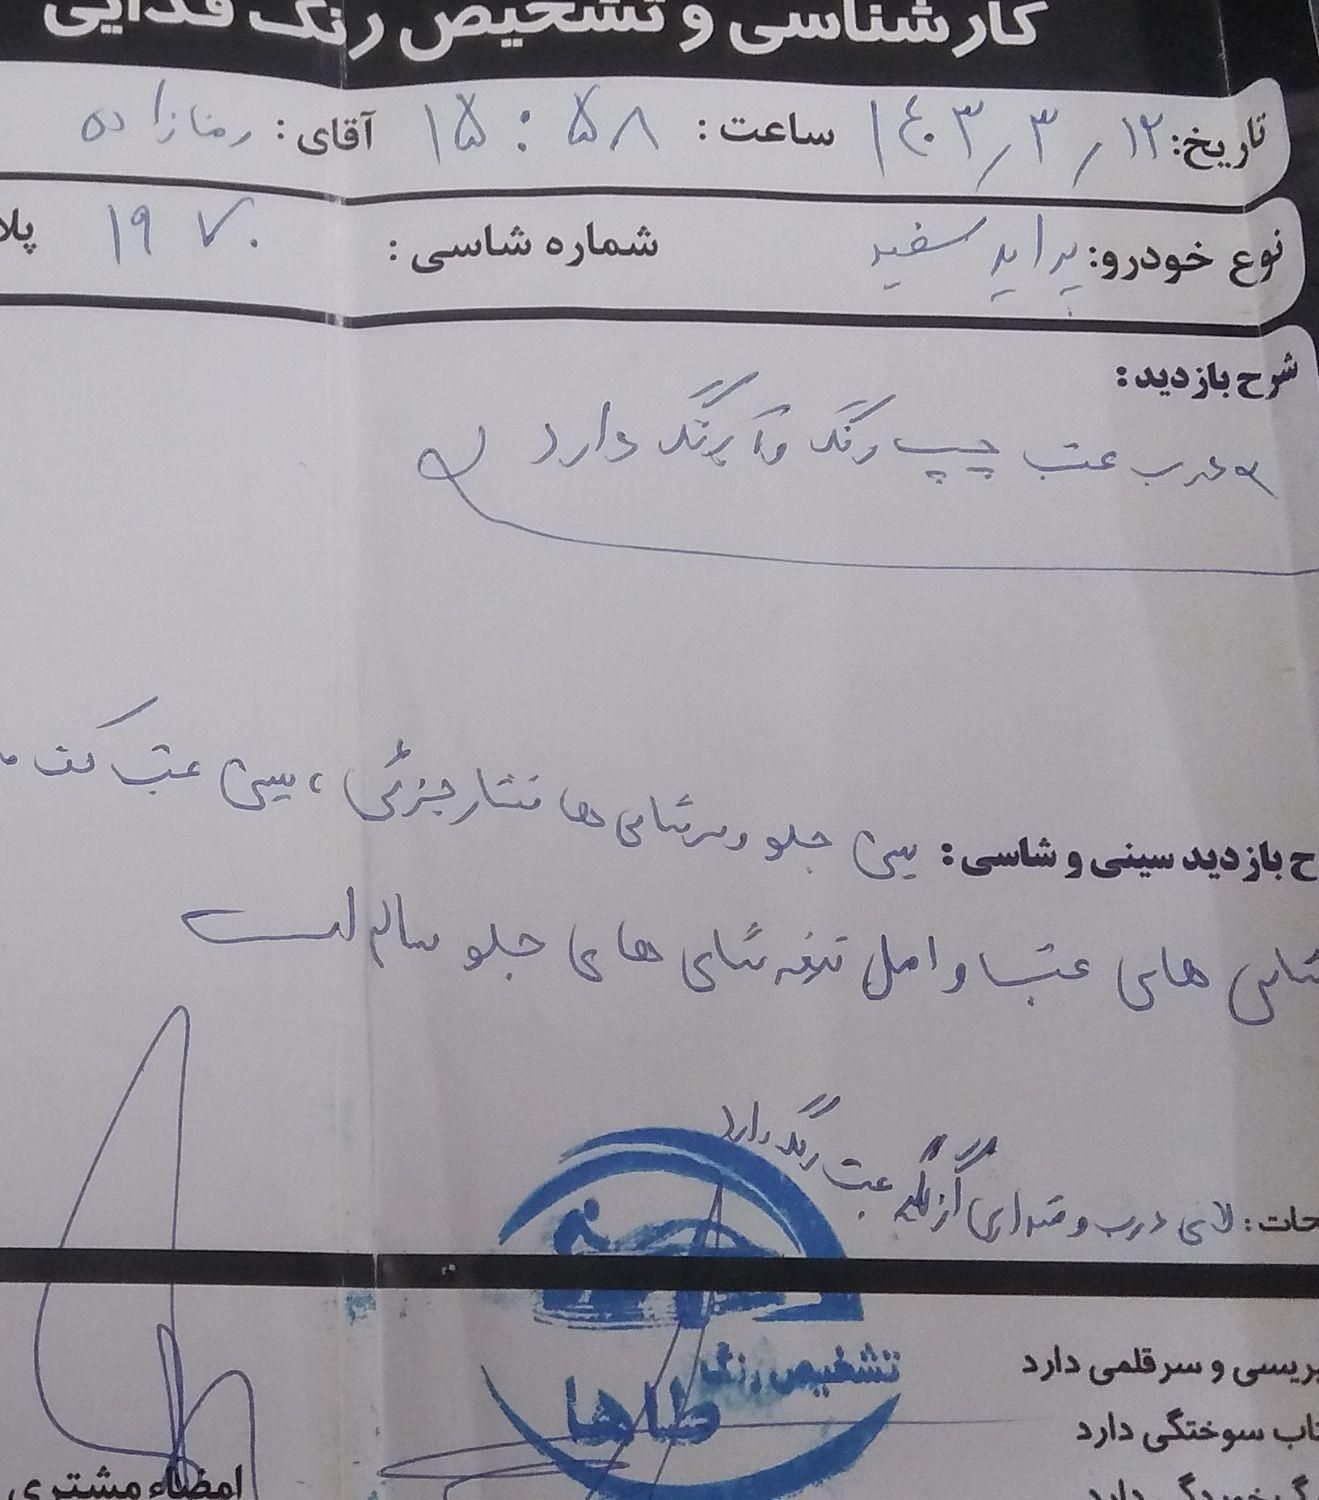 کارشناسی و تشخیص رنگ فدایی
تاریخ: ۱۴۰۳٫۳٫۱۲ ساعت: ۱۵:۵۸ آقای: رضازاده
نوع خودرو: پراید سفید شماره شاسی: ۱۹۷۰ پلا
شرح بازدید:
درب عقب چپ رنگ و آبرنگ دارد
ح بازدید سینی و شاسی: سینی جلو و سرشاسی ها فشار جزئی، سینی عقب کف
شاسی های عقب و اصل تیغه شاسی های جلو سالم است
حات: لای درب و مقداری از گلگیر عقب رنگ دارد
تشخیص رنگ
طاها
بریسی و سرقلمی دارد
تاب سوختگی دارد
گ خوردگی دارد
امضاء مشتری